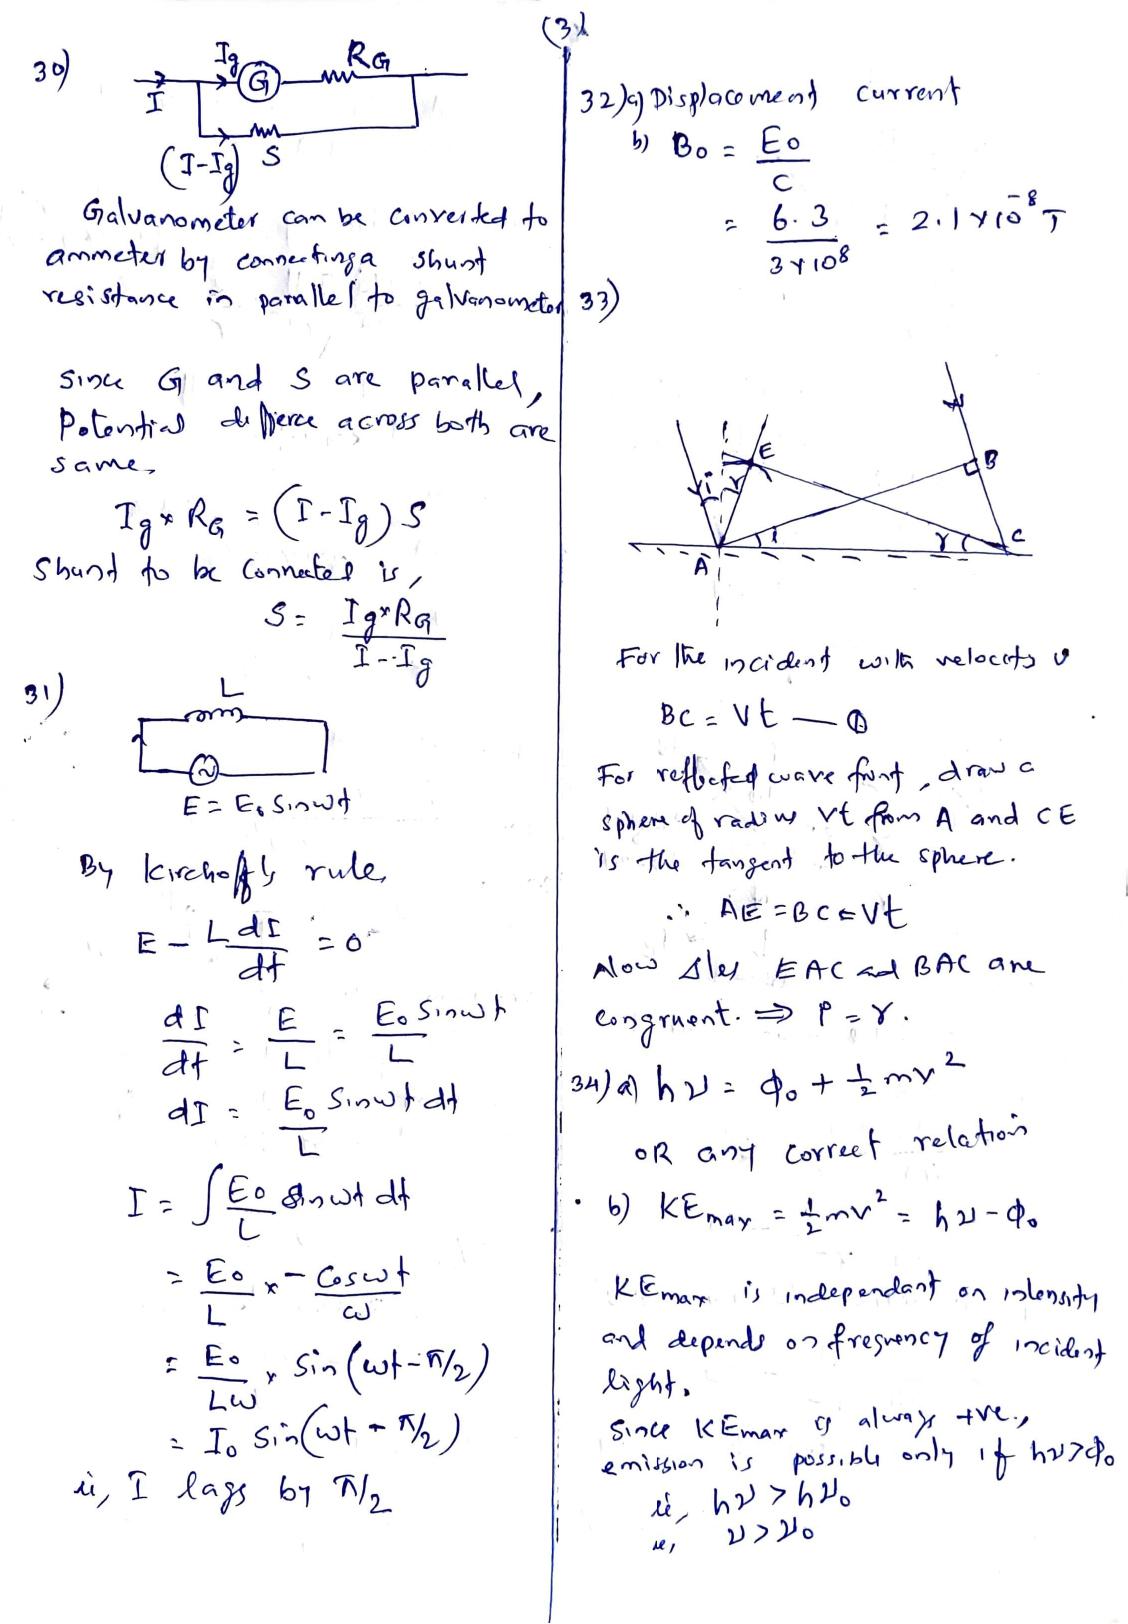 (3)
30)
Ig
RG
G
I
(I-Ig)
S
Galvanometer can be converted to
ammeter by connecting a shunt
resistance in parallel to galvanometer
Since G and S are parallel,
Potential differce across both are
same,
Ig × RG = (I-Ig) S
Shunt to be connected is,
S = Ig×RG / I-Ig
31)
L
E = E₀ Sinωt
By Kirchoff's rule,
E - L dI/dt = 0
dI/dt = E/L = E₀ Sinωt / L
dI = E₀/L Sinωt dt
I = ∫ E₀/L Sinωt dt
= E₀/L × - Cosωt / ω
= E₀/Lω × Sin(ωt-π/2)
= I₀ Sin(ωt - π/2)
ie, I lags by π/2
32) a) Displacement current
b) B₀ = E₀/C
= 6.3 / 3×10⁸ = 2.1×10⁻⁸ T
33)
E
B
i
r
i
r
C
A
For the incident with velocity v
BC = vt — ①
For reflected wave front, draw a
sphere of radius vt from A and CE
is the tangent to the sphere.
∴ AE = BC = vt
Now Δles EAC and BAC are
congruent. ⇒ i = r.
34) a) hν = ϕ₀ + ½ mv²
OR any correct relation
b) KEmax = ½mv² = hν - ϕ₀
KEmax is independant on intensity
and depends on frequency of incident
light.
Since KEmax is always +ve,
emission is possible only if hν>ϕ₀
ie, hν > hν₀
ie, ν > ν₀